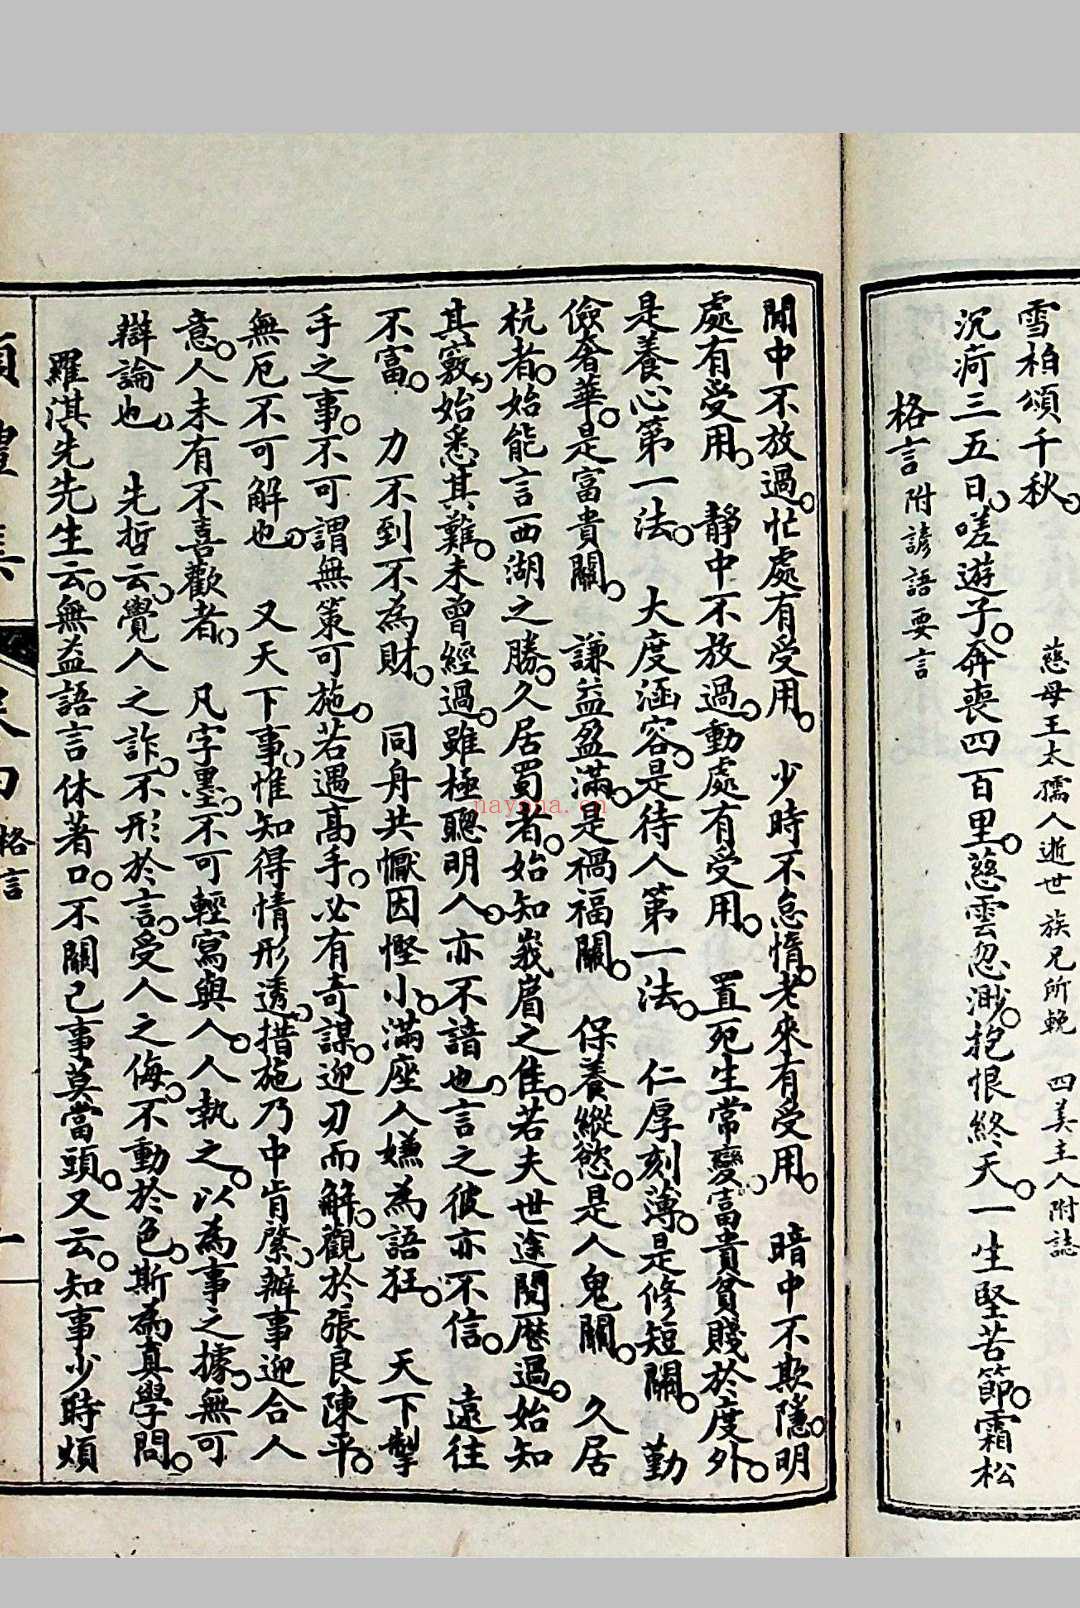 雪柏頌千秋。
慈母王太孺人逝世　族兄所輓　四美主人附誌
沉疴三五日。嗟遊子。奔喪四百里。慈雲忽渺。抱恨終天。一生堅苦節。霜松
格言附諺語要言
閒中不放過。忙處有受用。　少時不怠惰。老來有受用。　暗中不欺隱。明
處有受用。　靜中不放過。動處有受用。　置死生常變。富貴貧賤於度外。
是養心第一法。　大度涵容。是待人第一法。　仁厚刻薄。是修短關。　勤
儉奢華。是富貴關。　謙益盈滿。是禍福關。　保養縱慾。是人鬼關。　久居
杭者。始能言西湖之勝。久居蜀者。始知峩眉之佳。若夫世途閱歷過。始知
其竅。始悉其難。未曾經過。雖極聰明人。亦不諳也。言之彼亦不信。　遠往
不富。　力不到不為財。　同舟共懨因慳小。滿座人嫌為語狂。　天下掣
手之事。不可謂無策可施。若遇高手。必有奇謀。迎刃而解。觀於張良陳平。
無厄不可解也。　又天下事。惟知得情形透。措施乃中肯綮。辦事迎合人
意。人未有不喜歡者。　凡字墨。不可輕寫與人。人執之。以為事之據。無可
辯論也。　先哲云。覺人之詐。不形於言。受人之侮。不動於色。斯為真學問。
羅淇先先生云。無益語言休著口。不關己事莫當頭。又云。知事少時煩
格言
nayona.cn